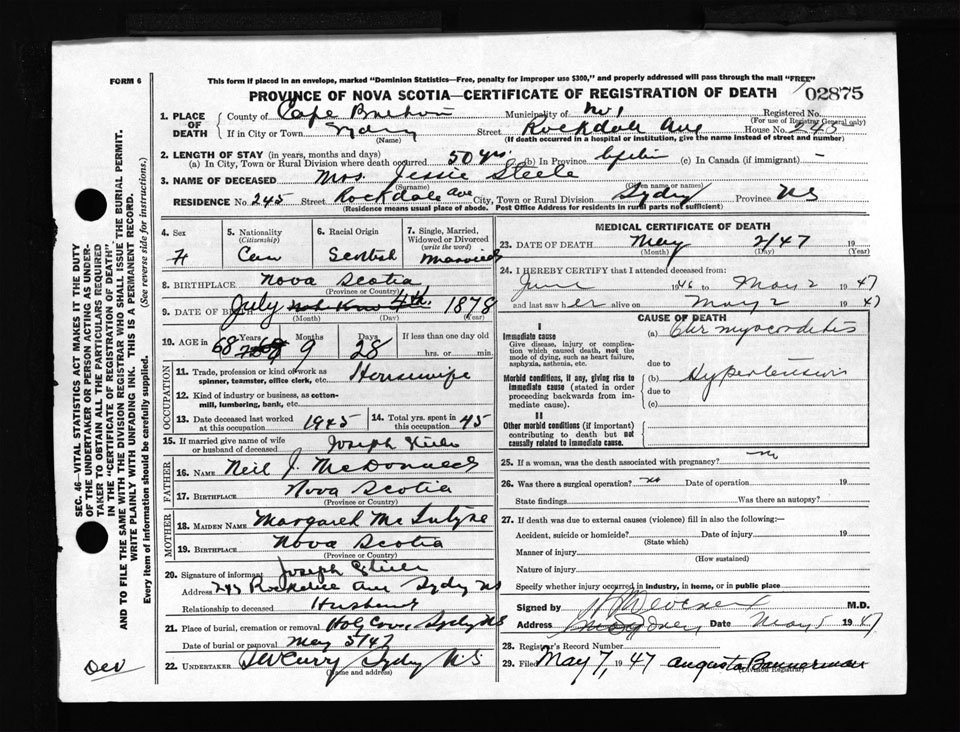 FORM 6
This form if placed in an envelope, marked "Dominion Statistics—Free, penalty for improper use $300," and properly addressed will pass through the mail "FREE"
PROVINCE OF NOVA SCOTIA—CERTIFICATE OF REGISTRATION OF DEATH 02875
1. PLACE OF DEATH
County of Cape Breton Municipality of No 1 Registered No.
(For use of Registrar General only)
If in City or Town Sydney Street Rockdale Ave House No. 245
(Name) (If death occurred in a hospital or institution, give the name instead of street and number)
2. LENGTH OF STAY (in years, months and days)
(a) In City, Town or Rural Division where death occurred 50 yrs (b) In Province (c) In Canada (if immigrant) -
3. NAME OF DECEASED Mrs. Jessie Steele
(Surname) (Given name or names)
RESIDENCE No. 245 Street Rockdale Ave City, Town or Rural Division Sydney Province NS
(Residence means usual place of abode. Post Office Address for residents in rural parts not sufficient)
4. Sex
F
5. Nationality
(Citizenship)
Can
6. Racial Origin
Scotish
7. Single, Married, Widowed or Divorced
(write the word)
Married
8. BIRTHPLACE Nova Scotia
(Province or Country)
9. DATE OF BIRTH July 4th 1878
(Month) (Day) (Year)
10. AGE in 68 Years 9 Months 28 Days If less than one day old
hrs. or min.
OCCUPATION
11. Trade, profession or kind of work as spinner, teamster, office clerk, etc. Housewife
12. Kind of industry or business, as cotton-mill, lumbering, bank, etc.
13. Date deceased last worked at this occupation 1945
14. Total yrs. spent in this occupation 45
15. If married give name of wife or husband of deceased Joseph Steele
FATHER
16. NAME Neil J. McDonald
17. BIRTHPLACE Nova Scotia
(Province or Country)
MOTHER
18. MAIDEN NAME Margaret McIntyre
19. BIRTHPLACE Nova Scotia
(Province or Country)
20. Signature of informant Joseph Steele
Address 245 Rockdale Ave Sydney NS
Relationship to deceased Husband
21. Place of burial, cremation or removal Holy Cross, Sydney NS
Date of burial or removal May 5/47
22. UNDERTAKER Curry Sydney N.S
(Name and address)
MEDICAL CERTIFICATE OF DEATH
23. DATE OF DEATH May 2/47 19
(Month) (Day) (Year)
24. I HEREBY CERTIFY that I attended deceased from:
June 1946 to May 2 1947
and last saw her alive on May 2 1947
CAUSE OF DEATH
I
Immediate cause
Give disease, injury or complication which caused death, not the mode of dying, such as heart failure, asphyxia, asthenia, etc.
(a) Chr myocarditis
due to
Morbid conditions, if any, giving rise to immediate cause (stated in order proceeding backwards from immediate cause).
(b) Hypertension
due to
(c)
II
Other morbid conditions (if important) contributing to death but not causally related to immediate cause.
25. If a woman, was the death associated with pregnancy? No
26. Was there a surgical operation? No Date of operation 19
State findings Was there an autopsy?
27. If death was due to external causes (violence) fill in also the following:—
Accident, suicide or homicide? Date of injury 19
(State which)
Manner of injury
(How sustained)
Nature of injury
Specify whether injury occurred in industry, in home, or in public place
Signed by M.D.
Address Sydney Date May 5 1947
28. Registrar's Record Number
29. Filed May 7, 1947 Augusta Bannerman
(Division Registrar)
SEC. 46—VITAL STATISTICS ACT MAKES IT THE DUTY
OF THE UNDERTAKER OR PERSON ACTING AS UNDERTAKER TO OBTAIN ALL THE PARTICULARS REQUIRED
IN THE "CERTIFICATE OF REGISTRATION OF DEATH"
AND TO FILE THE SAME WITH THE DIVISION REGISTRAR WHO SHALL ISSUE THE BURIAL PERMIT.
WRITE PLAINLY WITH UNFADING INK. THIS IS A PERMANENT RECORD.
Every item of information should be carefully supplied. (See reverse side for instructions.)